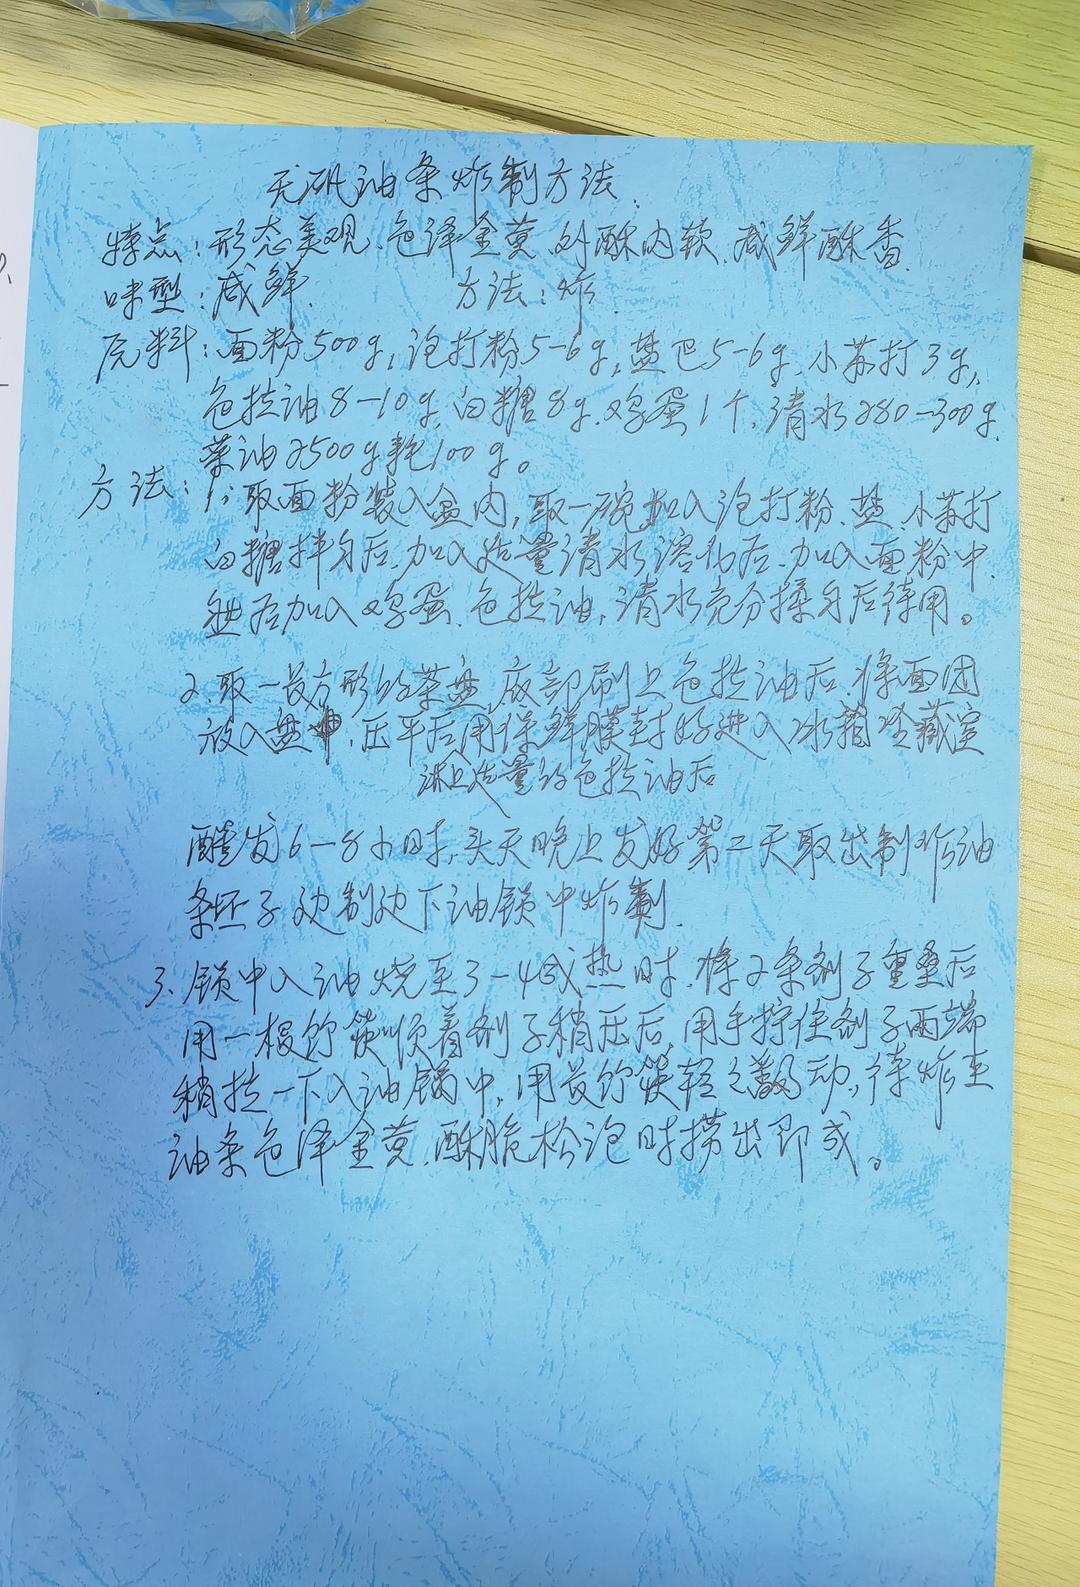 无矾油条炸制方法.
特点:形态美观、色泽金黄、外酥内软、咸鲜酥香.
味型:咸鲜. 方法:炸
原料:面粉500g,泡打粉5-6g,盐巴5-6g、小苏打3g,
色拉油8-10g、白糖8g、鸡蛋1个、清水280-300g.
菜油2500g耗100g。
方法:1、取面粉装入盆内,取一碗加入泡打粉、盐、小苏打
白糖拌匀后、加入适量清水溶化后、加入面粉中、
然后加入鸡蛋、色拉油,清水充分揉匀后待用。
2、取一长方形的茶盘,底部刷上色拉油后、将面团
放入盘中、压平后用保鲜膜封好进入冰箱冷藏室
适量的色拉油后
醒发6-8小时,头天晚上发好第二天取出制作油
条坯子边制边下油锅中炸制.
3、锅中入油烧至3-4成热时、将2条剂子重叠后
用一根竹筷顺着剂子稍压后、用手拧住剂子两端
稍拉一下入油锅中,用长竹筷轻轻翻动,待炸至
油条色泽金黄、酥脆松泡时捞出即成。